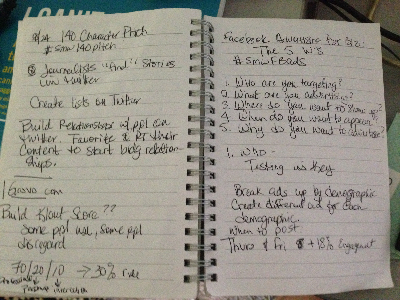 140 Character Pitch
# smw140pitch
Journalists "find" stories
on twitter
Create lists on Twitter
Build Relationships w/ ppl on
twitter. Favorite & RT their
content to start bldg relation-
ships.
Build Klout Score??
Some ppl use, some ppl
disregard
70/20/10 → 30% rule
Facebook Advertising for Biz
The 5 W's
# SmwFBads
1. Who are you targeting?
2. What are you advertising?
3. Where do you want to show up?
4. When do you want to appear?
5. Why do you want to advertise?
1. Who -
Testing is key
Break ads up by demographic
Create different ad for each
demographic.
When to post
Thurs & Fri + 18% Engagement